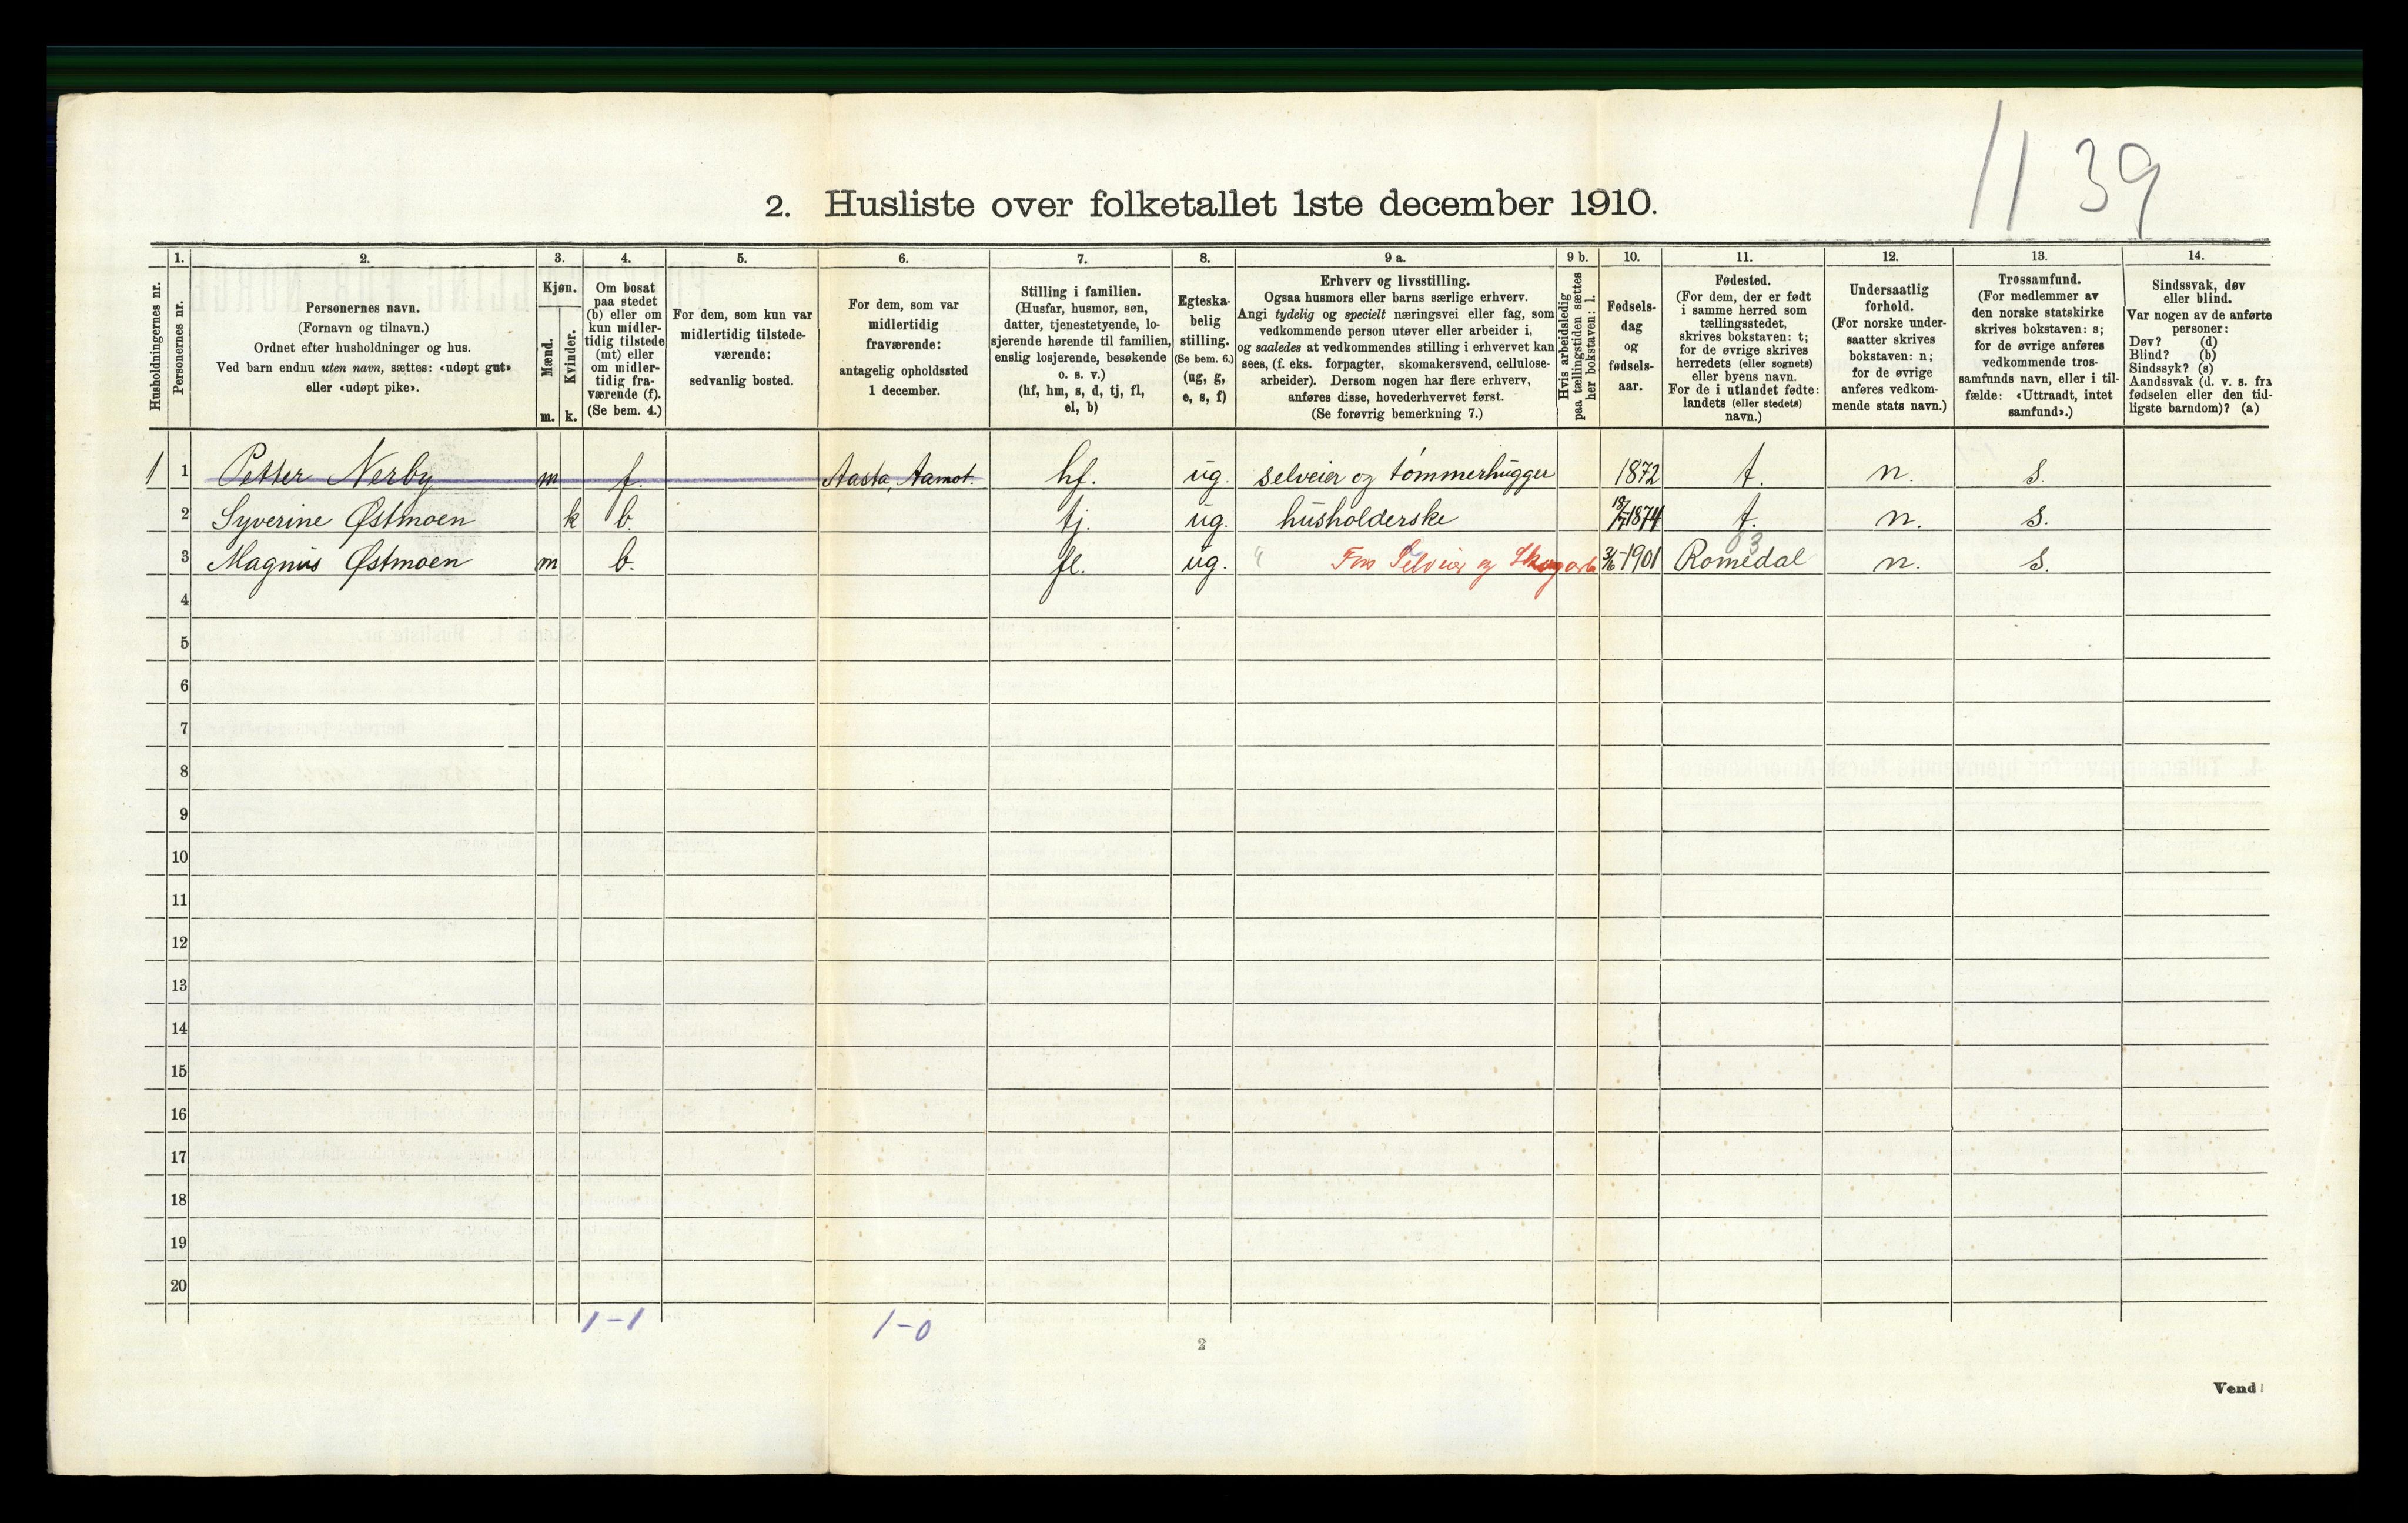 11 39
2. Husliste over folketallet 1ste december 1910.
Husholdningernes nr.
1.
Personernes nr.
2.
Personernes navn.
(Fornavn og tilnavn.)
Ordnet efter husholdninger og hus.
Ved barn endnu uten navn, sættes: «udøpt gut»
eller «udøpt pike».
3.
Kjøn.
Mænd.
m.
Kvinder.
k.
4.
Om bosat
paa stedet
(b) eller om
kun midler-
tidig tilstede
(mt) eller
om midler-
tidig fra-
værende (f).
(Se bem. 4.)
5.
For dem, som kun var
midlertidig tilstede-
værende:
sedvanlig bosted.
6.
For dem, som var
midlertidig
fraværende:
antagelig opholdssted
1 december.
7.
Stilling i familien.
(Husfar, husmor, søn,
datter, tjenestetyende, lo-
sjerende hørende til familien,
enslig losjerende, besøkende
o. s. v.)
(hf, hm, s, d, tj, fl,
el, b)
8.
Egteska-
belig
stilling.
(Se bem. 6.)
(ug, g,
e, s, f)
9 a.
Erhverv og livsstilling.
Ogsaa husmors eller barns særlige erhverv.
Angi tydelig og specielt næringsvei eller fag, som
vedkommende person utøver eller arbeider i,
og saaledes at vedkommendes stilling i erhvervet kan
sees, (f. eks. forpagter, skomakersvend, cellulose-
arbeider). Dersom nogen har flere erhverv,
anføres disse, hovederhvervet først.
(Se forøvrig bemerkning 7.)
9 b.
Hvis arbeidsledig
paa tællingstiden sættes
her bokstaven: l.
10.
Fødsels-
dag
og
fødsels-
aar.
11.
Fødested.
(For dem, der er født
i samme herred som
tællingsstedet,
skrives bokstaven: t;
for de øvrige skrives
herredets (eller sognets)
eller byens navn.
For de i utlandet fødte:
landets (eller stedets)
navn.)
12.
Undersaatlig
forhold.
(For norske under-
saatter skrives
bokstaven: n;
for de øvrige
anføres vedkom-
mende stats navn.)
13.
Trossamfund.
(For medlemmer av
den norske statskirke
skrives bokstaven: s;
for de øvrige anføres
vedkommende tros-
samfunds navn, eller i til-
fælde: «Uttraadt, intet
samfund».)
14.
Sindssvak, døv
eller blind.
Var nogen av de anførte
personer:
Døv? (d)
Blind? (b)
Sindssyk? (s)
Aandssvak (d. v. s. fra
fødselen eller den tid-
ligste barndom)? (a)
1 1 Petter Nerby m f. Aasta, Aamot. hf. ug. selveier og tømmerhugger 1872 t. n. s.
2 Syverine Østmoen k b. tj. ug. husholderske 18/7 1874 t. n. s.
63
3 Magnus Østmoen m b. fl. ug. " Fors Selveier og Skogarb 1901 Romedal n. s.
4
5
6
7
8
9
10
11
12
13
14
15
16
17
18
19
20
1-1 1-0
2
Vend!